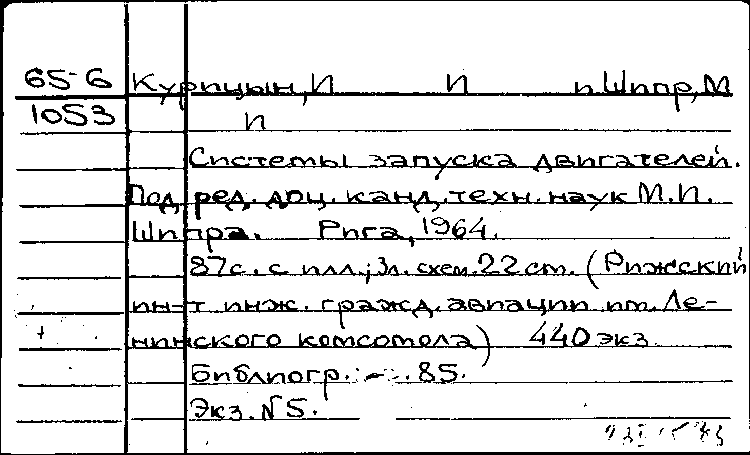 65-6 Курицын, И И и Шпир, М
1053 И
Системы запуска двигателей.
Под ред. доц. канд. техн. наук М.И.
Шпира. Рига, 1964.
87с. с илл.; 3л. схем. 22 ст. (Рижский
ин-т инж. гражд. авиации им. Ле-
нинского комсомола) 440 экз.
Библиогр. 85.
Экз. №5.